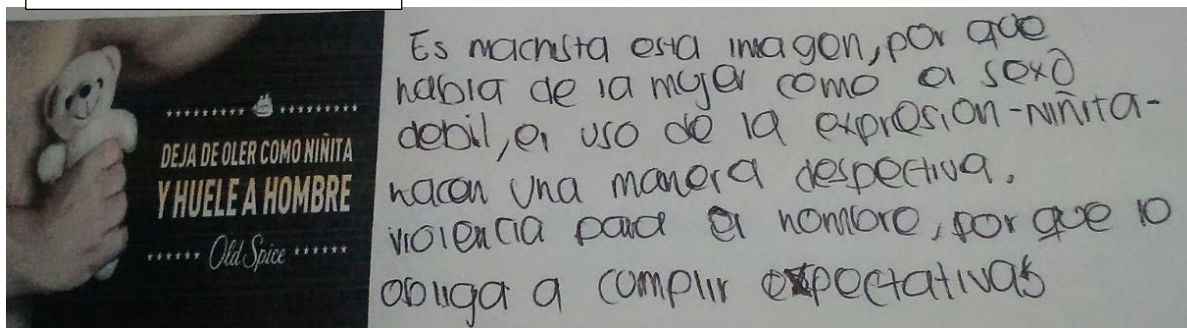 DEJA DE OLER COMO NIÑITA
Y HUELE A HOMBRE
Old Spice
Es machista esta imagen, por que
habla de la mujer como el sexo
debil, el uso de la expresion-niñita-
hacen una manera despectiva.
violencia para el hombre, por que lo
obliga a cumplir expectativas